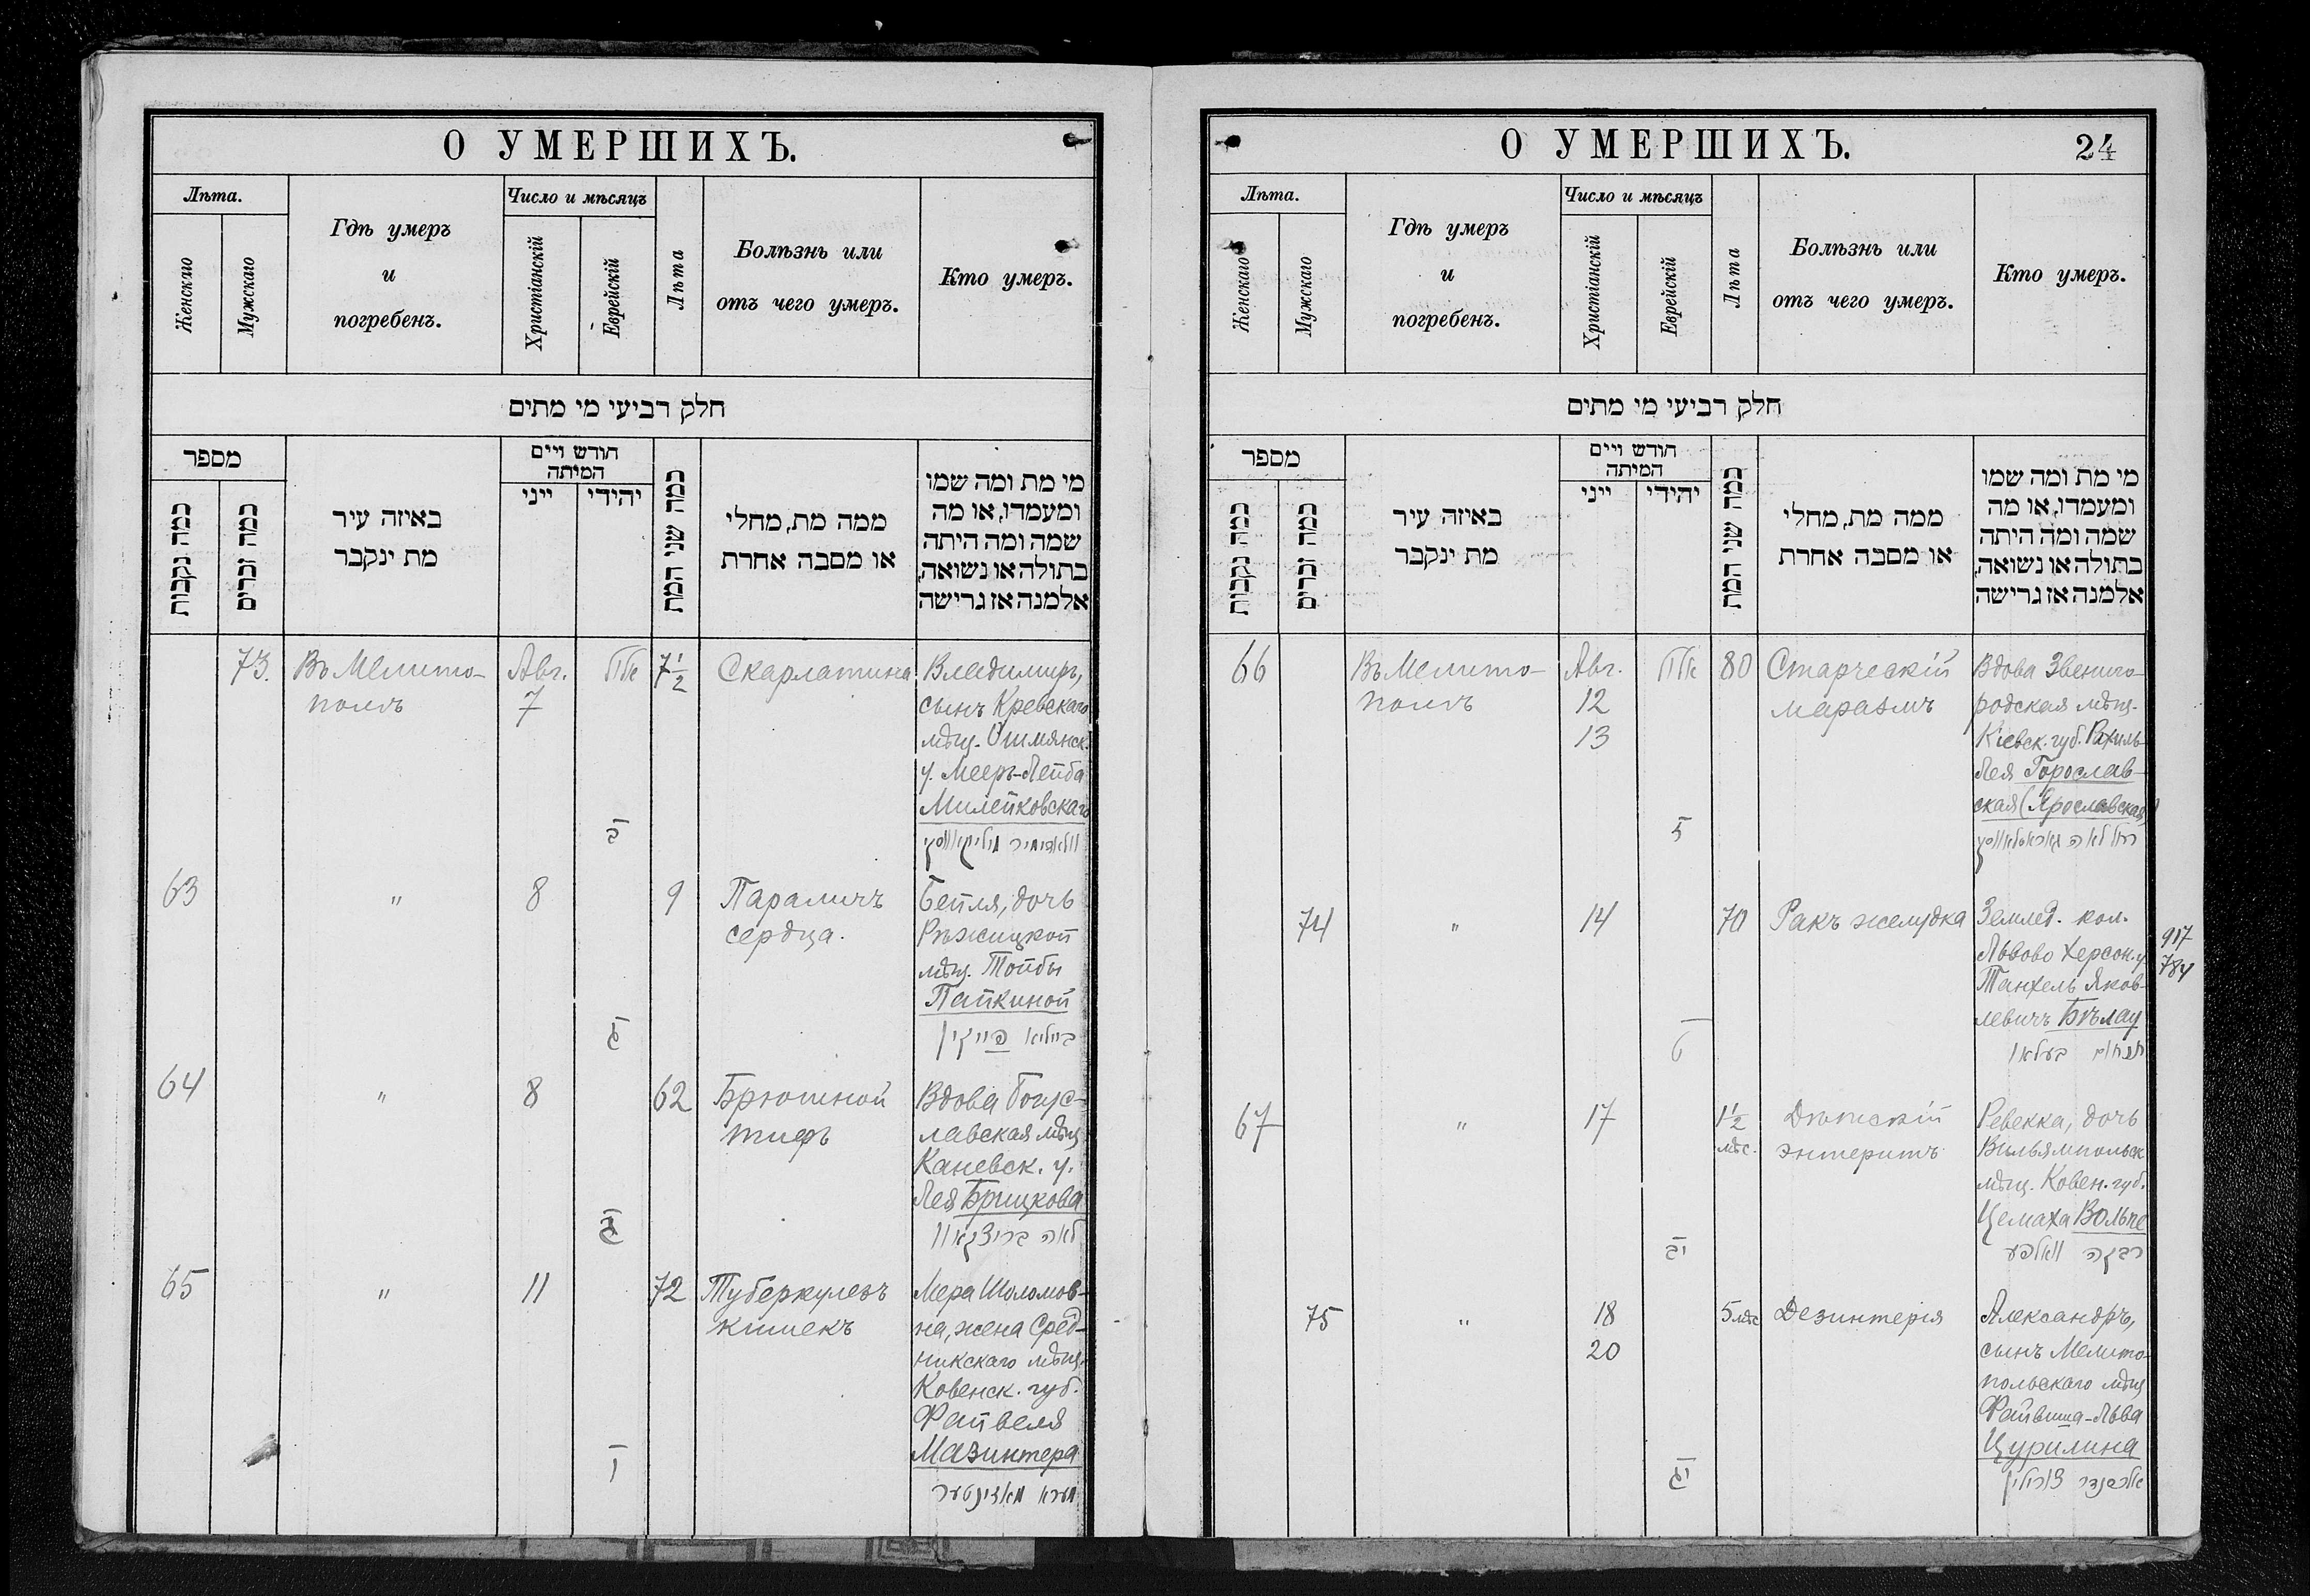 О УМЕРШИХЪ.
Лѣта.
Женскаго
Мужскаго
Гдѣ умеръ
и
погребенъ.
Число и мѣсяцъ
Христіанскій
Еврейскій
Лѣта
Болѣзнь или
отъ чего умеръ.
Кто умеръ.
חלק רביעי מי מתים
מספר
כמה נקבות
כמה זכרים
באיזה עיר
מת ינקבר
חודש ויים
המיתה
ייני
יהידי
כמה שני המת
ממה מת, מחלי
או מסבה אחרת
מי מת ומה שמו
ומעמדו, או מה
שמה ומה היתה
בתולה או נשואה,
אלמנה אז גרישה
73. Въ Мелито-
полѣ
Авг.
7
ב
7½
Скарлатина
Владимиръ,
сынъ Кревскаго
мѣщ. Ошмянск.
у. Мееръ-Лейба
Милейковскаго
63
"
8
ג
9
Параличъ
сердца.
Бейля, дочь
Рѣжицкой
мѣщ. Тойбы
Пайкиной
ביילא פייקין
64
"
8
ג
62
Брюшной
тифъ
Вдова Богус-
лавская мѣщ.
Каневск. у.
Лея Брицкова
לאה בריצקאוו
65
"
11
ו
72
Туберкулезъ
кишекъ
Мера Шоломов-
на, жена Сред-
никскаго мѣщ.
Ковенск. губ.
Файвеля
Мазинтера
מערא מאזינטער
О УМЕРШИХЪ.
24
Лѣта.
Женскаго
Мужскаго
Гдѣ умеръ
и
погребенъ.
Число и мѣсяцъ
Христіанскій
Еврейскій
Лѣта
Болѣзнь или
отъ чего умеръ.
Кто умеръ.
חלק רביעי מי מתים
מספר
כמה נקבות
כמה זכרים
באיזה עיר
מת ינקבר
חודש ויים
המיתה
ייני
יהידי
כמה שני המת
ממה מת, מחלי
או מסבה אחרת
מי מת ומה שמו
ומעמדו, או מה
שמה ומה היתה
בתולה או נשואה,
אלמנה אז גרישה
66
Въ Мелито-
полѣ
Авг.
12
13
80
Старческій
маразмъ
Вдова Звениго-
родская мѣщ.
Кіевск. губ. Рахиль-
Лея Горослав-
ская (Ярославская)
74
"
14
70
Ракъ желудка
Землед. кол.
Львово Херсон. у.
Танхель Яков-
левичъ Бѣлау
917
784
67
"
17
יב
1½
мѣс.
Дѣтскій
энтеритъ
Ревекка, дочь
Вильямпольск
мѣщ. Ковен. губ.
Цемаха Вольпе
רבקה וואלפע
75
"
18
20
יג
5 мѣс
Дезинтерія
Александръ,
сынъ Мелито-
польскаго мѣщ
Файвиша-Льва
Цурилина